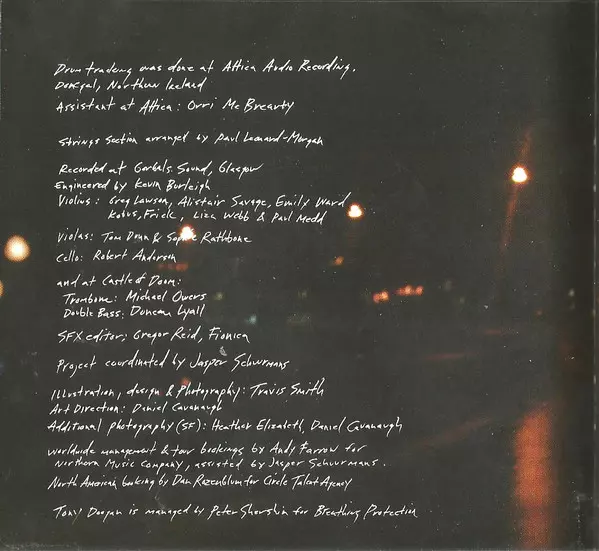 Drum tracking was done at Attica Audio Recording,
Donegal, Northern Ireland
Assistant at Attica: Orri Mc Brearty
Strings section arranged by Paul Leonard-Morgan
Recorded at Gorbals Sound, Glasgow
Engineered by Kevin Burleigh
Violins: Greg Lawson, Alistair Savage, Emily Ward
Kobus, Frick, Liza Webb & Paul Medd
Violas: Tom Dunn & Sophie Rathbone
Cello: Robert Anderson
and at Castle of Doom:
Trombone: Michael Owers
Double Bass: Duncan Lyall
SFX editor; Gregor Reid, Fionica
Project coordinated by Jasper Schuurmans
Illustration, design & Photography: Travis Smith
Art Direction: Daniel Cavanaugh
Additional photography (SF): Heather Elizabeth, Daniel Cavanaugh
Worldwide management & tour bookings by Andy Farrow for
Northern Music Company, assisted by Jasper Schuurmans.
North American booking by Dan Rozenblum for Circle Talent Agency
Tony Doogan is managed by Peter Shershin for Breathing Protection